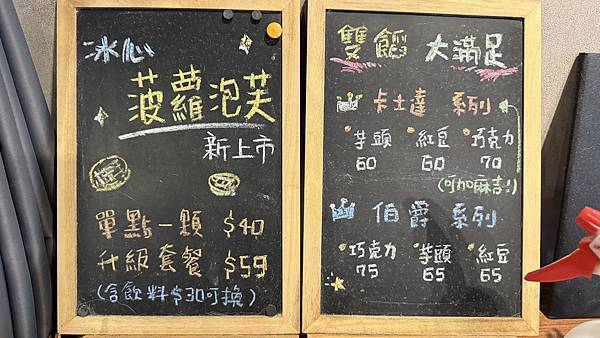 冰心
菠蘿泡芙
新上市
單點一顆 $40
升級套餐 $59
(含飲料$30可換)
雙餡 大滿足
卡士達 系列
芋頭 紅豆 巧克力
60 60 70
(可加麻吉!)
伯爵 系列
巧克力 芋頭 紅豆
75 65 65